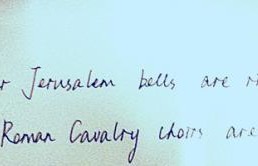 r Jerusalem bells are ri
Roman Cavalry choirs are